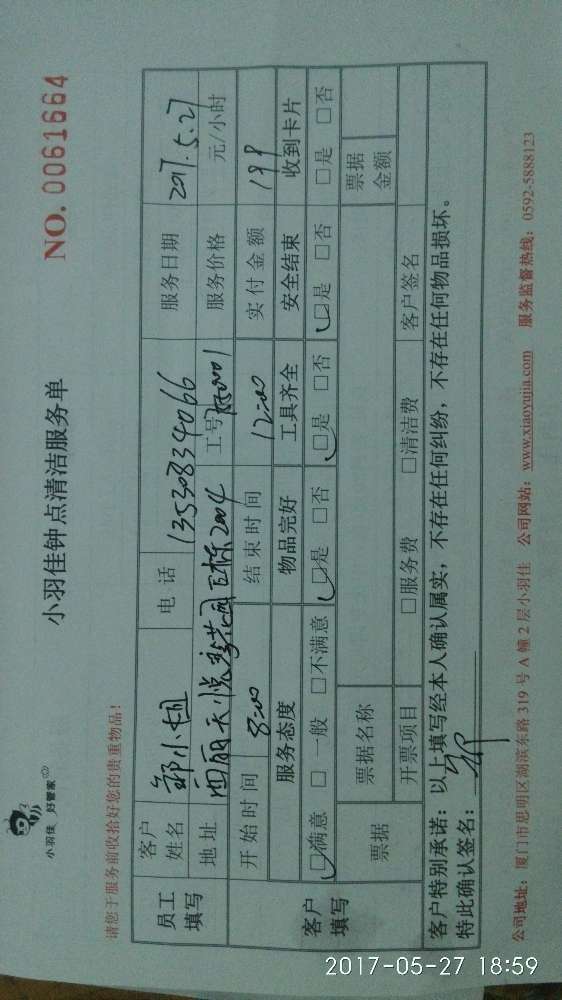 小羽佳 好管家
小羽佳钟点清洁服务单
NO. 0061664
请您于服务前收拾好您的贵重物品!
员工填写
客户姓名 郭小姐 电话 13530834066 服务日期 2017.5.27
地址 西丽天悦 花园 栋2004 工号 0001 服务价格 元/小时
开始时间 8:00 结束时间 12:00 实付金额 199
客户填写
服务态度 物品完好 工具齐全 安全结束 收到卡片
☑满意 □一般 □不满意 ☑是 □否 ☑是 □否 ☑是 □否 □是 □否
票据 票据名称 票据金额
开票项目 □服务费 □清洁费 客户签名
客户特别承诺:以上填写经本人确认属实,不存在任何纠纷,不存在任何物品损坏。
特此确认签名:
公司地址:厦门市思明区湖滨东路 319 号 A 幢 2 层小羽佳 公司网站:www.xiaoyujia.com 服务监督热线:0592-5888123
2017-05-27 18:59